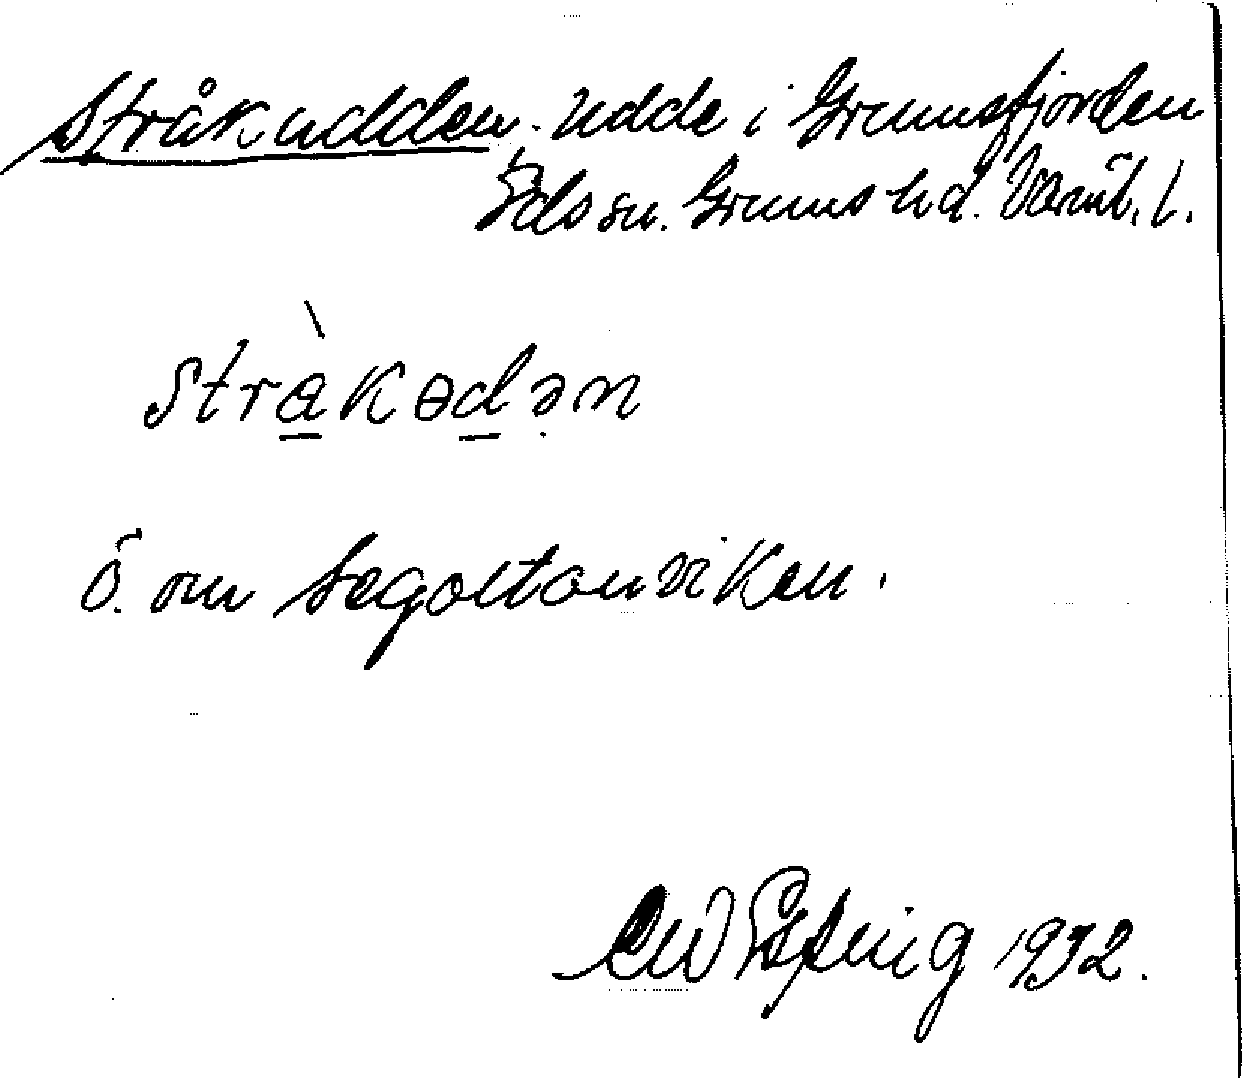 Stråkudden. Udde i Grumsfjorden
Eds sn. Grums hd. Värml. l.
stràkɵdən
Ö. om Segoltanviken.
1932.